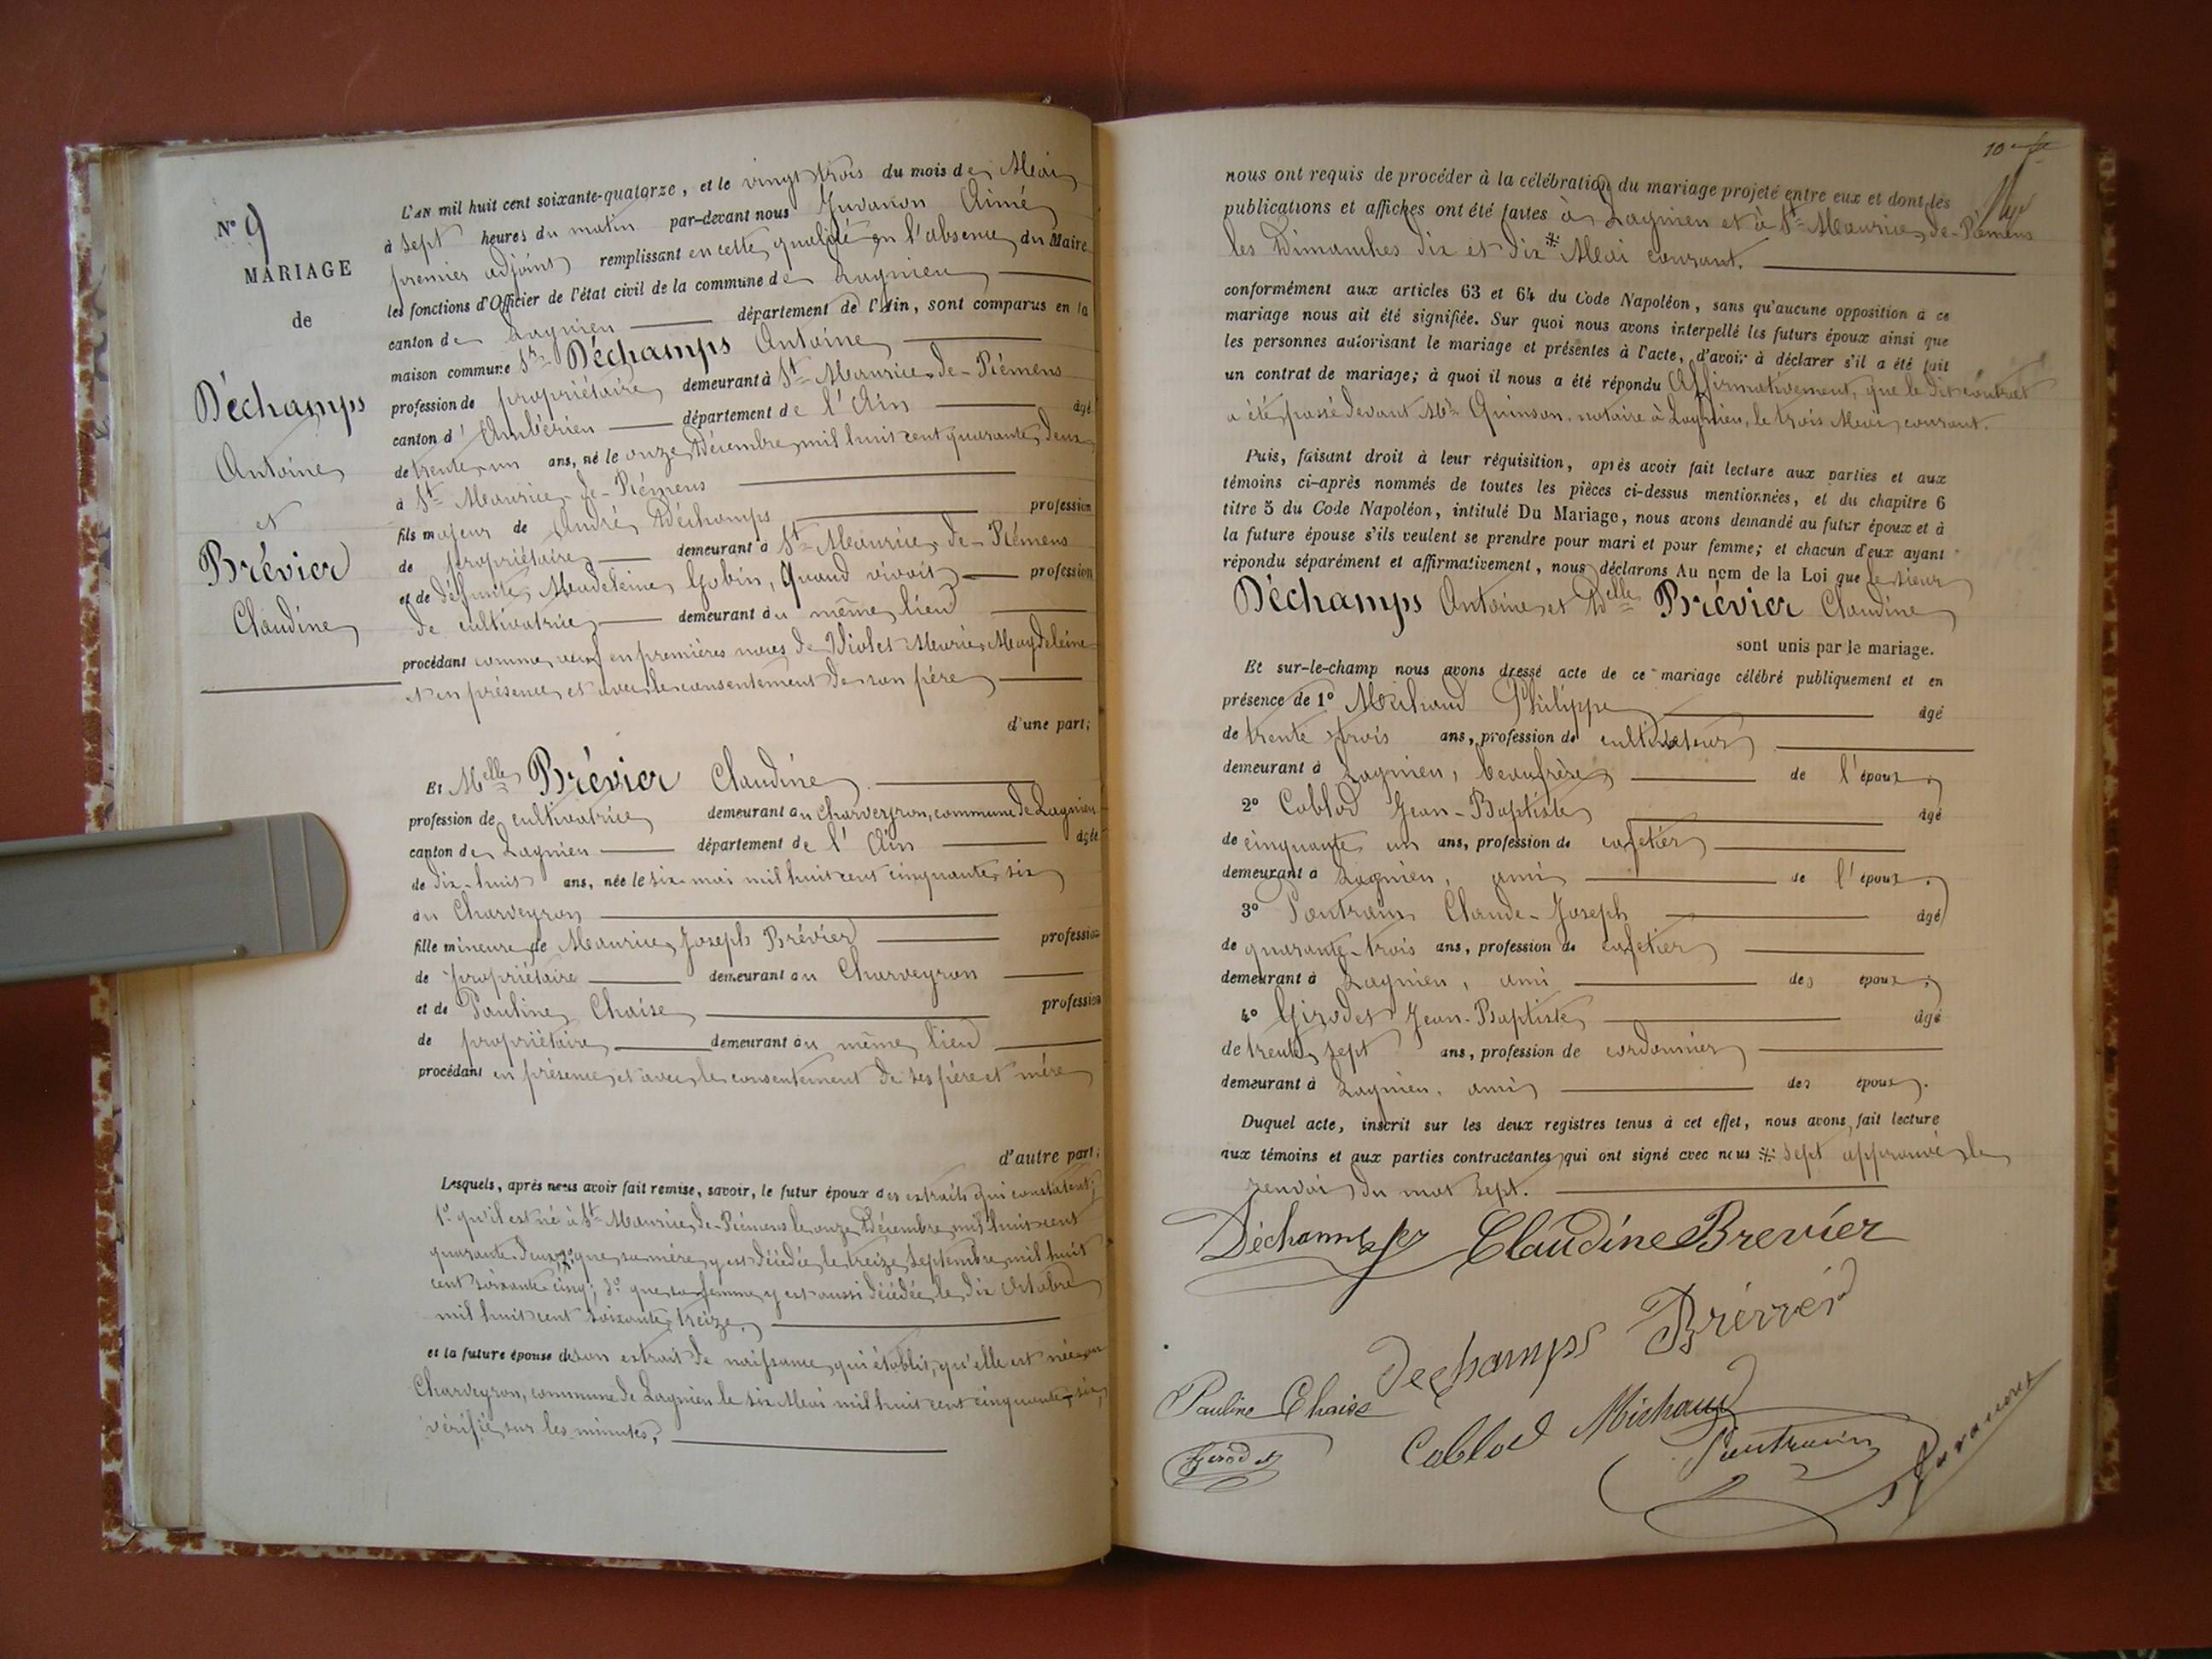 N° 9
MARIAGE
de
Déchamps
Antoine
et
Brévier
Claudine
L'AN mil huit cent soixante-quatorze, et le vingt trois du mois de Mai
à sept heures du matin par-devant nous Juvanon Aimé
premier adjoint remplissant en cette qualité en l'absence du Maire
les fonctions d'Officier de l'état civil de la commune de Lagnieu
canton de Lagnieu département de l'Ain, sont comparus en la
maison commune Sr Déchamps Antoine
profession de propriétaire demeurant à St Maurice-de-Rémens
canton d' Ambérieu département de l'Ain âgé
de trente-un ans, né le onze Décembre mil huit cent quarante deux
à St Maurice-de-Rémens
fils majeur de André Déchamps profession
de propriétaire demeurant à St Maurice-de-Rémens
et de défunte Madeleine Gobin, quand vivait profession
de cultivatrice demeurant au même lieu
procédant comme veuf en premières noces de Violet Marie Magdeleine
et en présence et avec le consentement de son père
d'une part;
Et Melle Brévier Claudine
profession de cultivatrice demeurant au Charveyron, commune de Lagnieu
canton de Lagnieu département de l'Ain âgée
de dix-huit ans, née le six mai mil huit cent cinquante six
au Charveyron
fille mineure de Maurice Joseph Brévier profession
de propriétaire demeurant au Charveyron
et de Pauline Chaise profession
de propriétaire demeurant au même lieu
procédant en présence et avec le consentement de ses père et mère
d'autre part;
Lesquels, après nous avoir fait remise, savoir, le futur époux des extraits qui constatent;
1° qu'il est né à St Maurice-de-Rémens le onze Décembre mil huit cent
quarante deux; 2° que sa mère y est décédée le treize Septembre mil huit
cent soixante cinq; 3° que sa femme y est aussi décédée le dix Octobre
mil huit cent soixante treize,
et la future épouse de son extrait de naissance qui établit, qu'elle est née au
Charveyron, commune de Lagnieu le six Mai mil huit cent cinquante-six,
vérifié sur les minutes,
10
nous ont requis de procéder à la célébration du mariage projeté entre eux et dont les
publications et affiches ont été faites à Lagnieu et à St Maurice-de-Rémens
les Dimanches dix et dix * Mai courant.
conformément aux articles 63 et 64 du Code Napoléon, sans qu'aucune opposition a ce
mariage nous ait été signifiée. Sur quoi nous avons interpellé les futurs époux ainsi que
les personnes autorisant le mariage et présentes à l'acte, d'avoir à déclarer s'il a été fait
un contrat de mariage; à quoi il nous a été répondu Affirmativement, que le dit contrat
a été passé devant Me Quinson, notaire à Lagnieu, le trois Mai courant.
Puis, faisant droit à leur réquisition, après avoir fait lecture aux parties et aux
témoins ci-après nommés de toutes les pièces ci-dessus mentionnées, et du chapitre 6
titre 5 du Code Napoléon, intitulé Du Mariage, nous avons demandé au futur époux et à
la future épouse s'ils veulent se prendre pour mari et pour femme; et chacun d'eux ayant
répondu séparément et affirmativement, nous déclarons Au nom de la Loi que le sieur
Déchamps Antoine et Delle Brévier Claudine
sont unis par le mariage.
Et sur-le-champ nous avons dressé acte de ce mariage célébré publiquement et en
présence de 1° Michaud Philippe âgé
de trente trois ans, profession de cultivateur
demeurant à Lagnieu, beaufrère de l'époux;
2° Coblod Jean-Baptiste âgé
de cinquante un ans, profession de cafetier
demeurant à Lagnieu, ami de l'époux;
3° Pautrain Claude-Joseph âgé
de quarante-trois ans, profession de cafetier
demeurant à Lagnieu, ami des époux;
4° Girodet Jean-Baptiste âgé
de trente sept ans, profession de cordonnier
demeurant à Lagnieu, ami des époux.
Duquel acte, inscrit sur les deux registres tenus à cet effet, nous avons fait lecture
aux témoins et aux parties contractantes qui ont signé avec nous * sept approuvé le
renvoi du mot sept.
Déchamps Claudine Brevier
Dechamps
Pauline Chaise
Coblod Michaud
Girodet
Pautrain
Juvanon